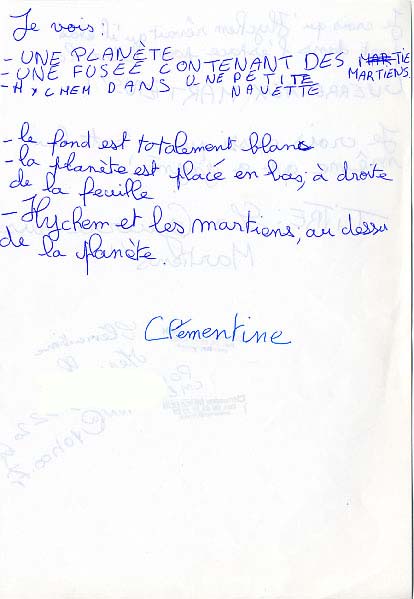 Je vois :
- UNE PLANÈTE
- UNE FUSÉE CONTENANT DES MARTIE MARTIENS.
- HYCHEM DANS UNE PETITE NAVETTE
- le fond est totalement blanc
- la planète est placé en bas, à droite
de la feuille
- Hychem et les martiens, au dessu
de la planète.
Clémentine